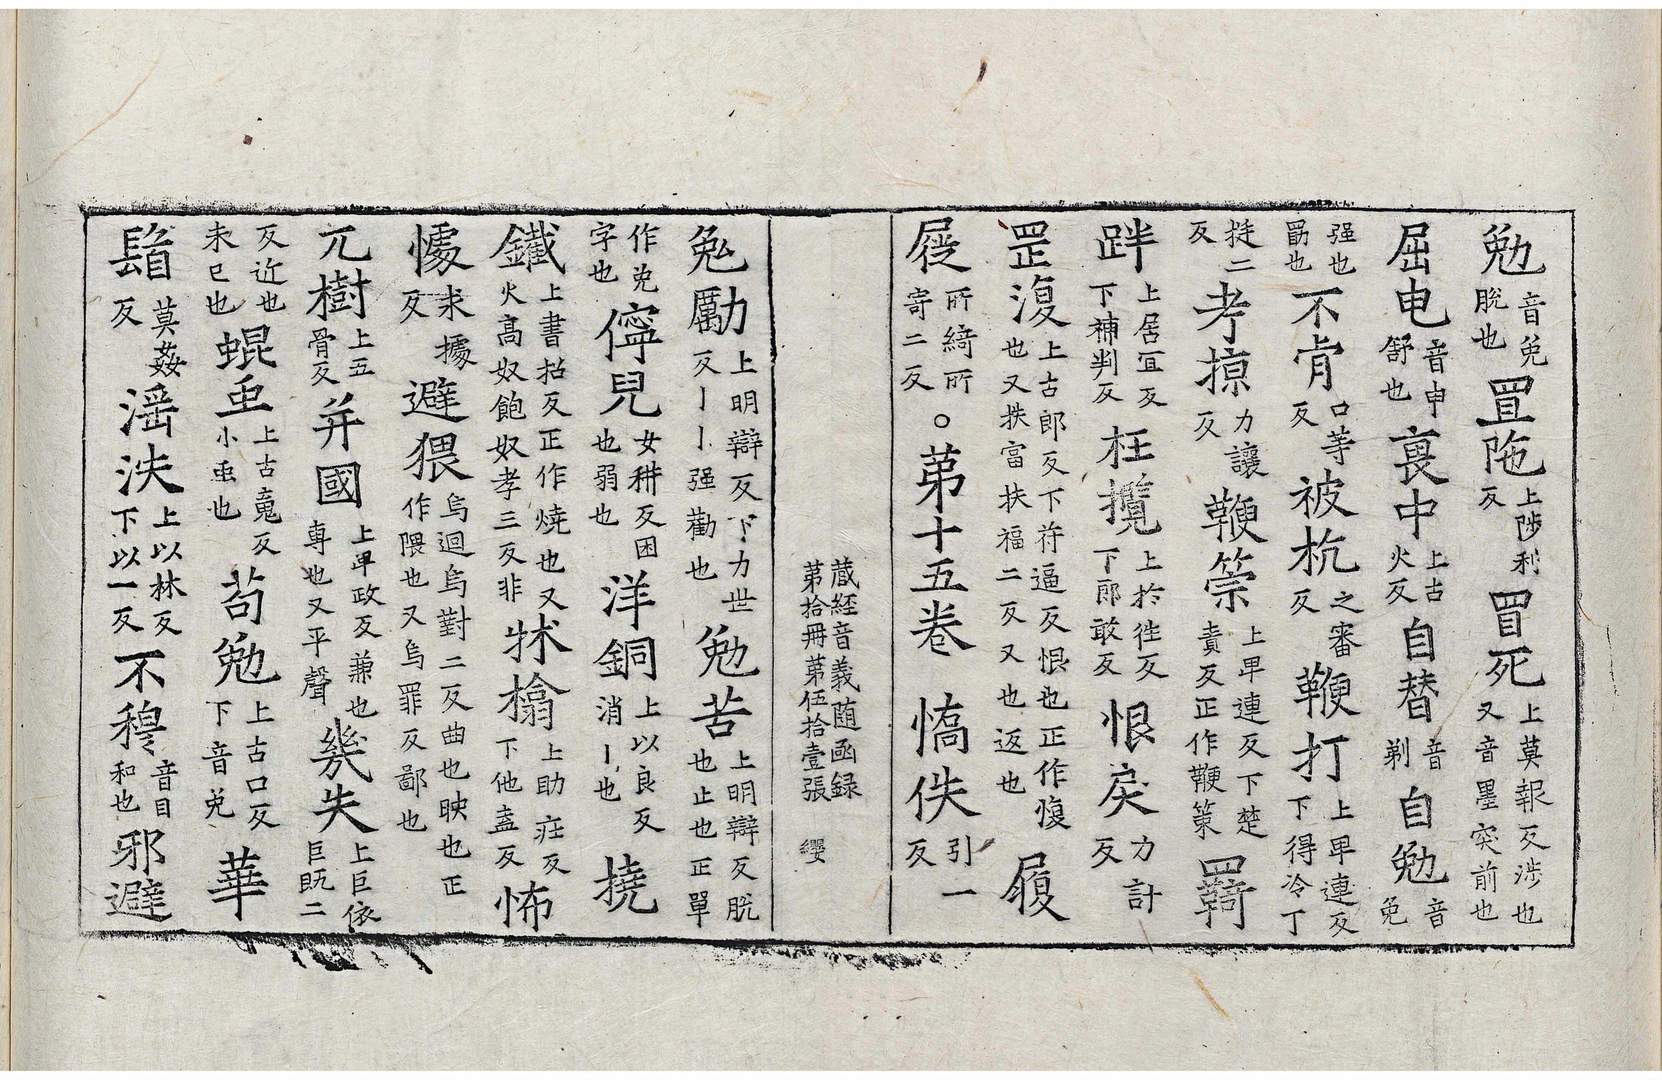 勉音免脫也罝陁上陟利反冒死上莫報反涉也又音墨突前也
屈电音申舒也裛中上古火反自替音剃自勉音免
强也勗也不肯口等反被杭之審反鞭打上卑連反下得冷丁
挺二反考掠力讓反鞭箣上卑連反下楚責反正作鞭策羇
跘上居冝反下補判反枉攬上於徃反下郎敢反恨戾力計反
罡復上古郎反下符逼反恨也正作愎也又扶富扶福二反又也返也履
屣所綺所寄二反。第十五卷 憍佚引一反
蔵經音義随函録
第拾冊第伍拾壹張 纓
勉勵上明辯反下力世反丨丨强勸也勉苦上明辯反脫也止也正單
作免字也儜兒女耕反困也弱也洋銅上以良反消丨也撓
鐵上書招反正作燒也又火高奴飽奴孝三反非牀榻上助庄反下他盍反怖
懅求據反避猥烏迴烏對二反曲也映也正作隈也又烏罪反鄙也
兀樹上五骨反并國上卑政反兼也專也又平聲幾失上巨依巨旣二
反近也未已也蜫䖝上古䰟反小䖝也苟勉上古口反下音免華
鬚莫姦反滛泆上以林反下以一反不穆音目和也邪避